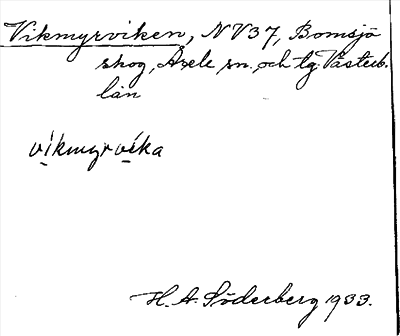 Vikmyrviken, NV37, Bomsjö
skog, Åsele sn. och tg. Västerb.
län
víkmyrvíka
H. A. Söderberg 1933.